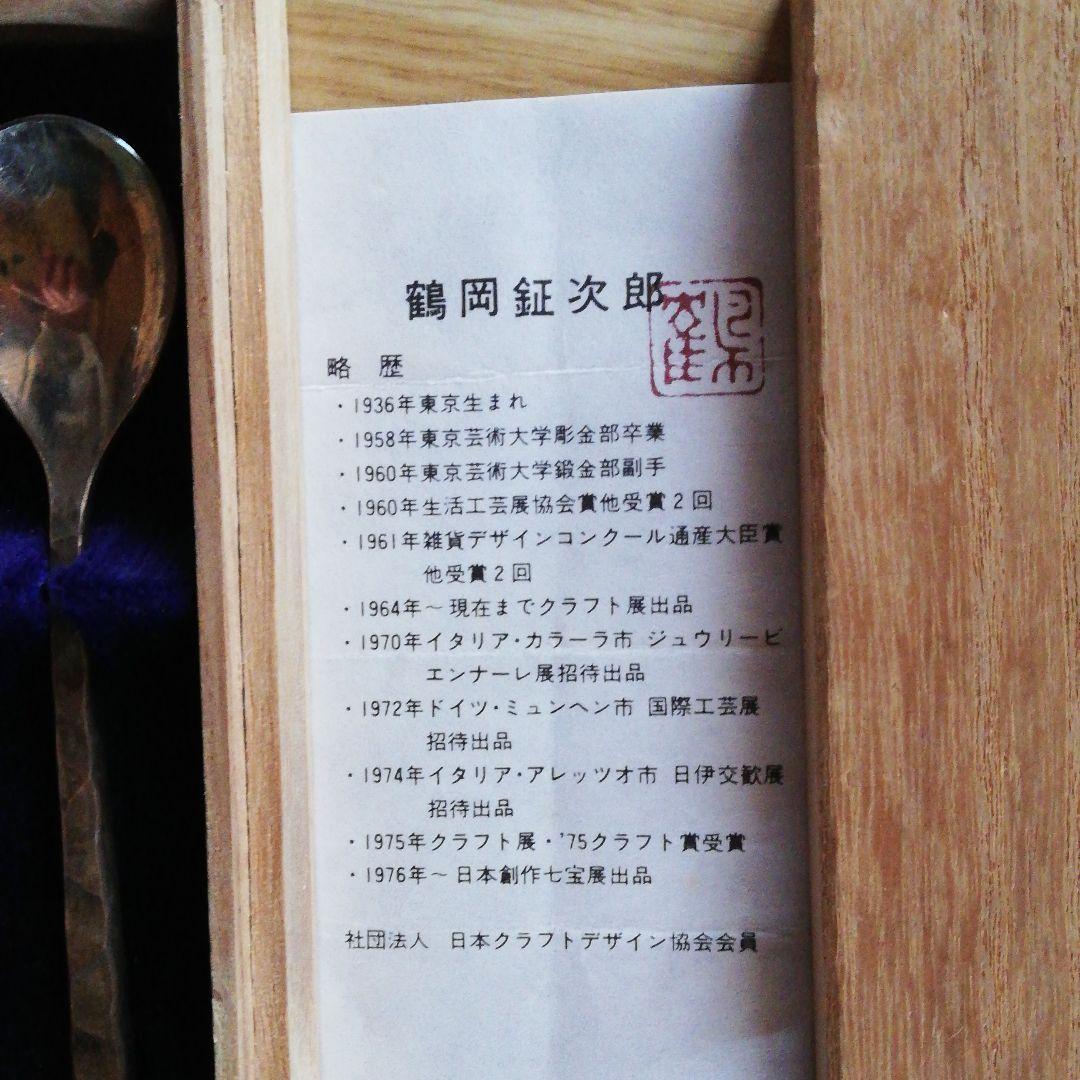 鶴岡鉦次郎
略 歴
・1936年東京生まれ
・1958年東京芸術大学彫金部卒業
・1960年東京芸術大学鍛金部副手
・1960年生活工芸展協会賞他受賞2回
・1961年雑貨デザインコンクール通産大臣賞
他受賞2回
・1964年～現在までクラフト展出品
・1970年イタリア・カラーラ市 ジュウリービ
エンナーレ展招待出品
・1972年ドイツ・ミュンヘン市 国際工芸展
招待出品
・1974年イタリア・アレッツオ市 日伊交歓展
招待出品
・1975年クラフト展・'75クラフト賞受賞
・1976年～日本創作七宝展出品
社団法人 日本クラフトデザイン協会会員